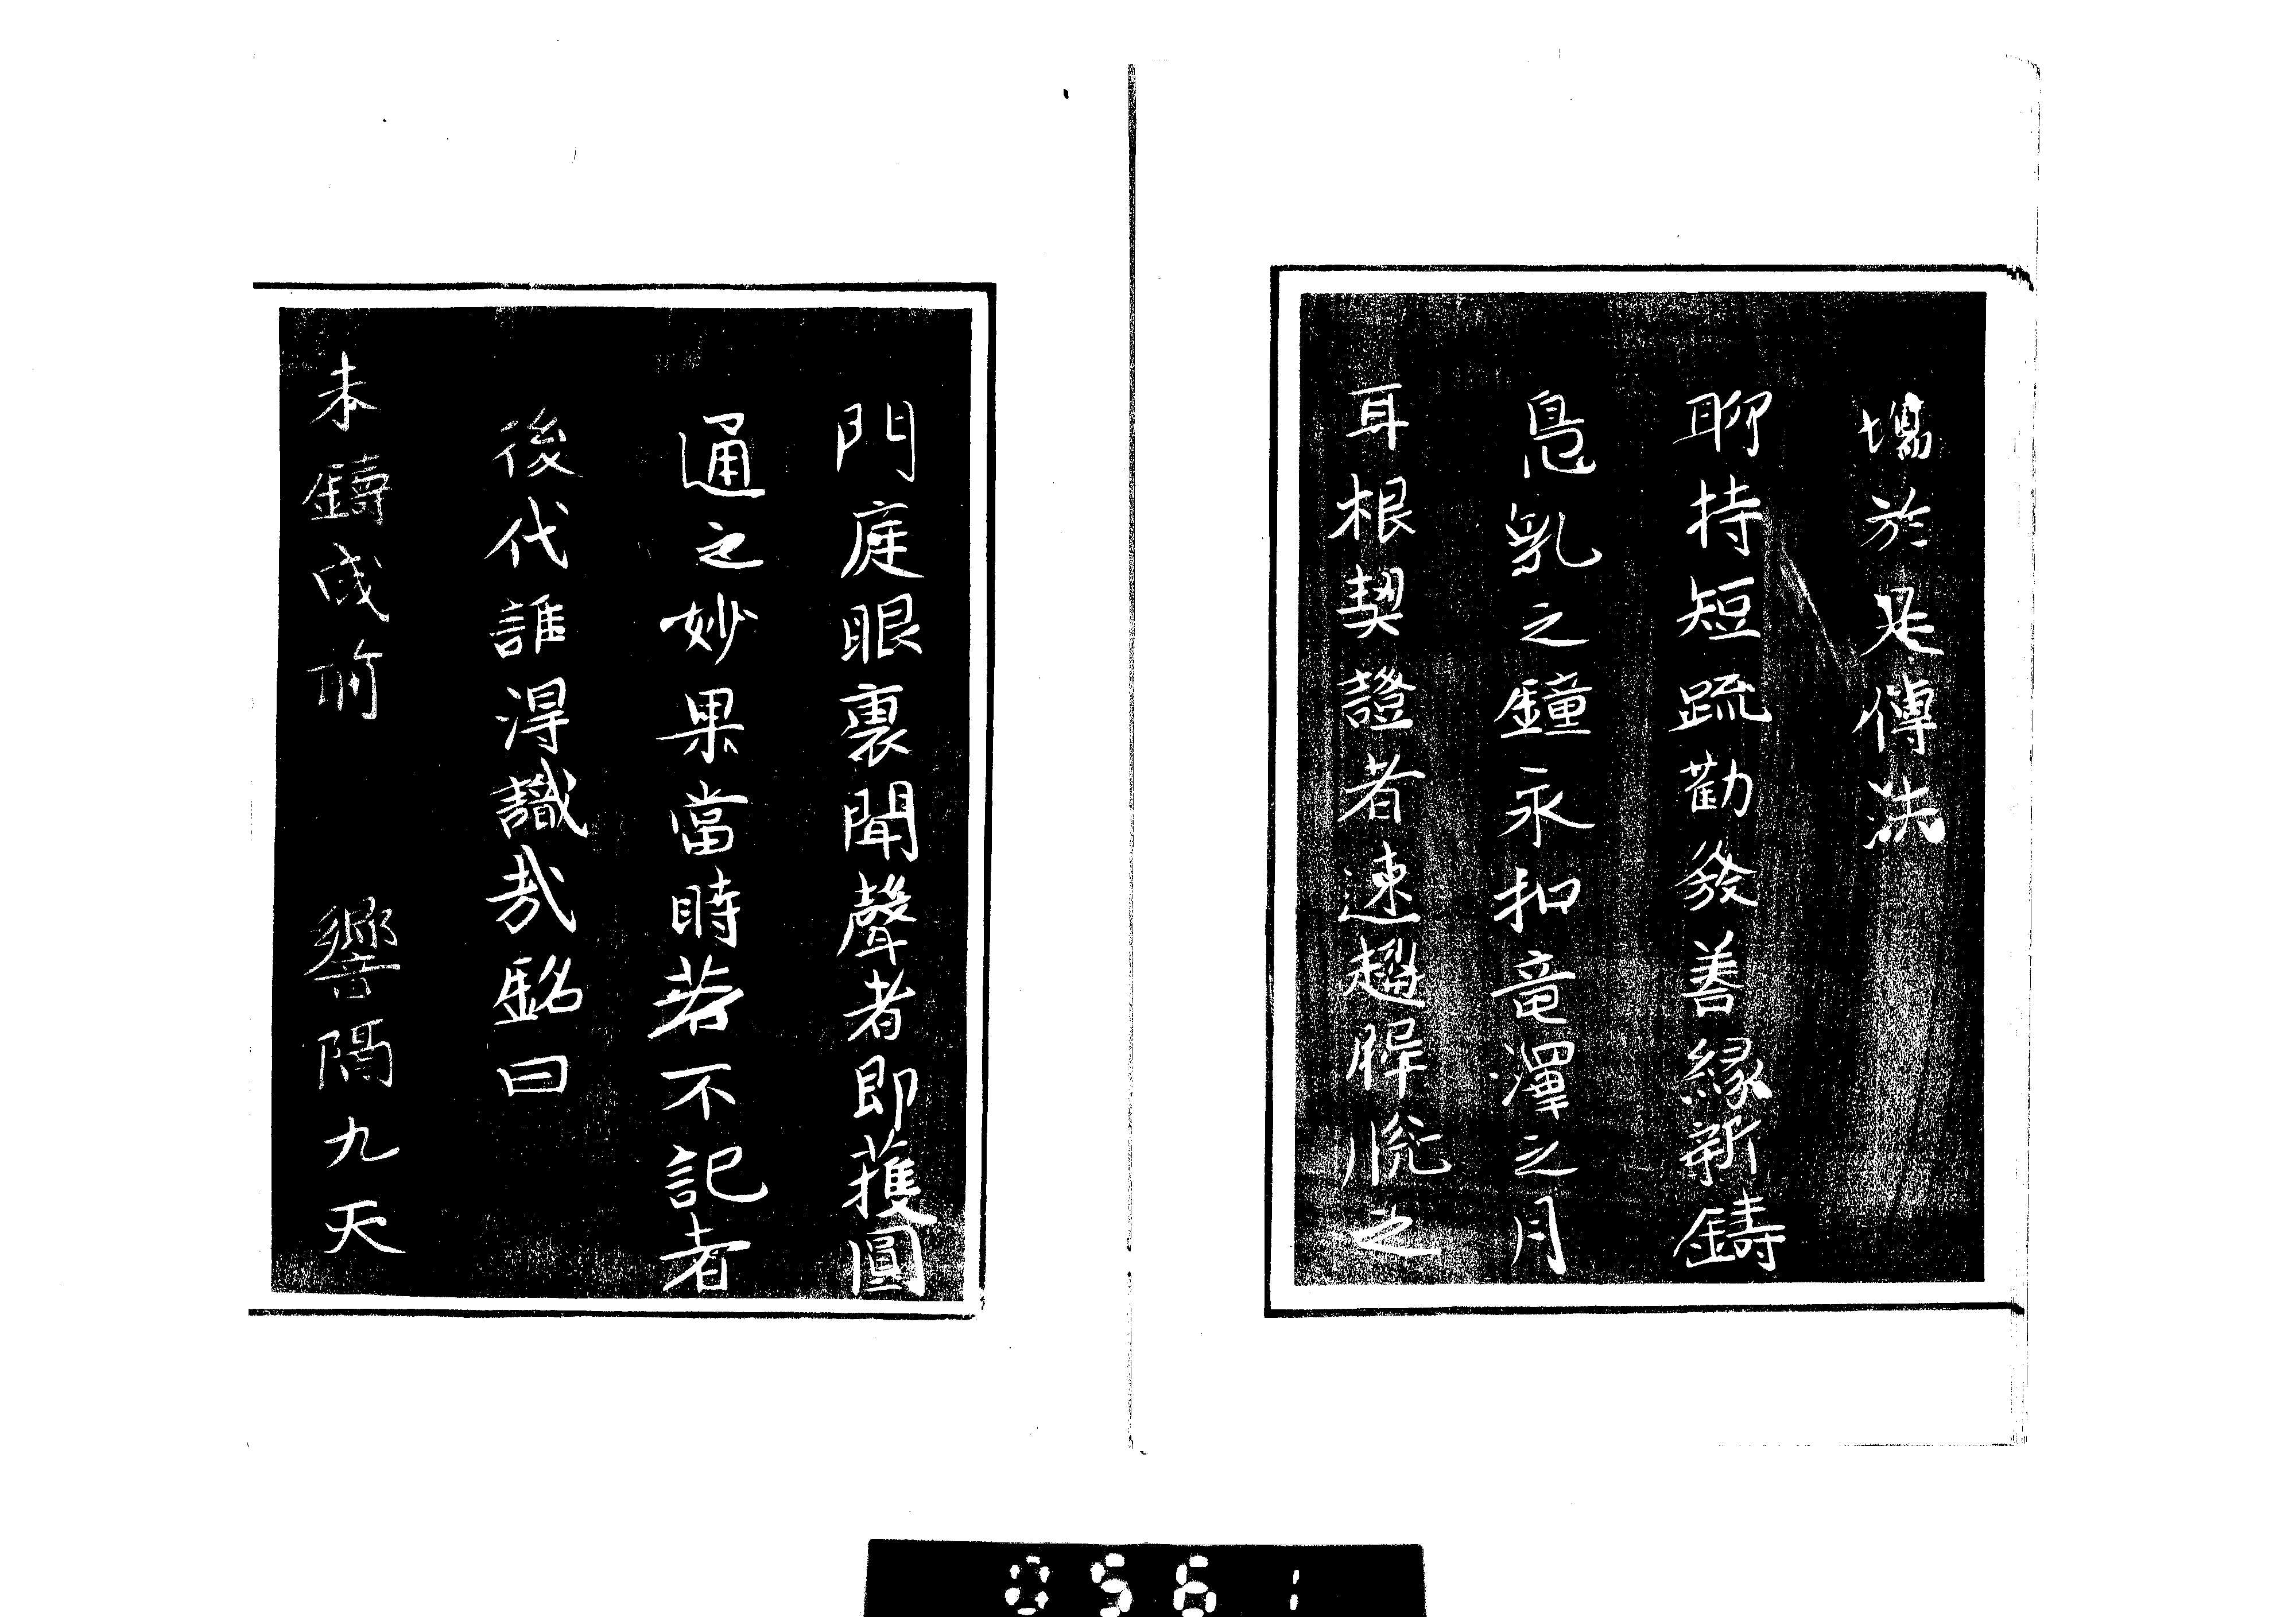 塲於是傳法
聊持短疏勸發善緣新鑄
鳬乳之鐘永扣竜澤之月
耳根契證者速趨解脫之
門庭眼裏聞聲者即獲圓
通之妙果當時若不記者
後代誰得識哉銘曰
未鑄成前 響隔九天
0561